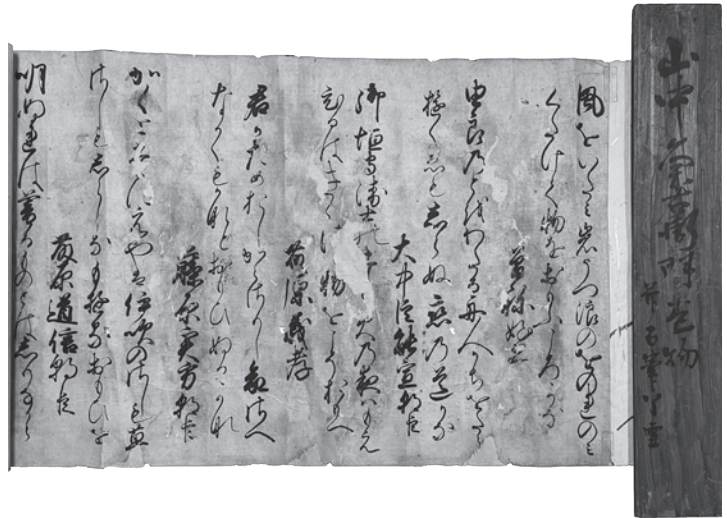 山中
風をいたミ岩うつ浪のをのれのミ
くたけて物をおもふころかな
曽祢好忠
由良乃とをわたる舟人かちをたえ
ゆくゑもしらぬ恋乃道かな
大中臣能宣朝臣
御垣守衛士のたく火乃夜ハもえ
ひるはきえつゝ物をこそおもへ
藤原義孝
君かためおしからさりし命さへ
なかくもかなとおもひぬるかな
藤原実方朝臣
かくとたにえやは伊吹のさしも草
さしもしらしなもゆるおもひを
藤原道信朝臣
明ぬれは暮るものとはしりなから